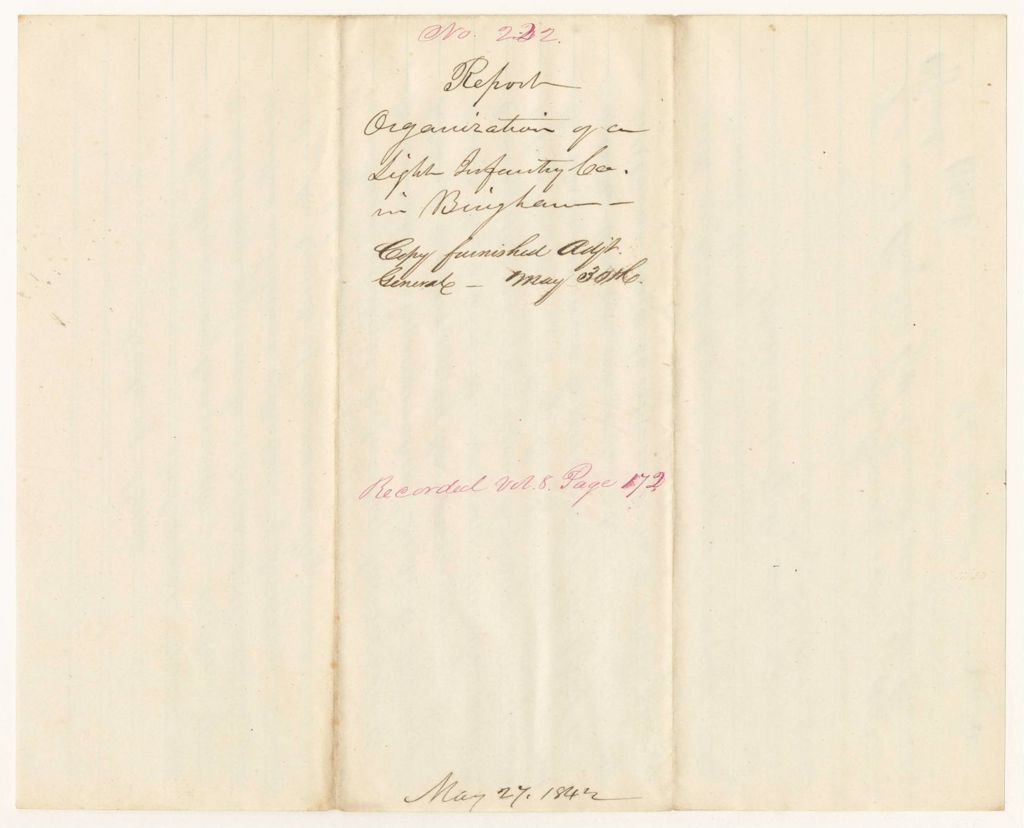 No. 222.
Report
Organization of a
Light Infantry Co.
in Bingham —
Copy furnished Adjt.
General — May 30th.
Recorded Vol. 8. Page 172
May 27. 1842